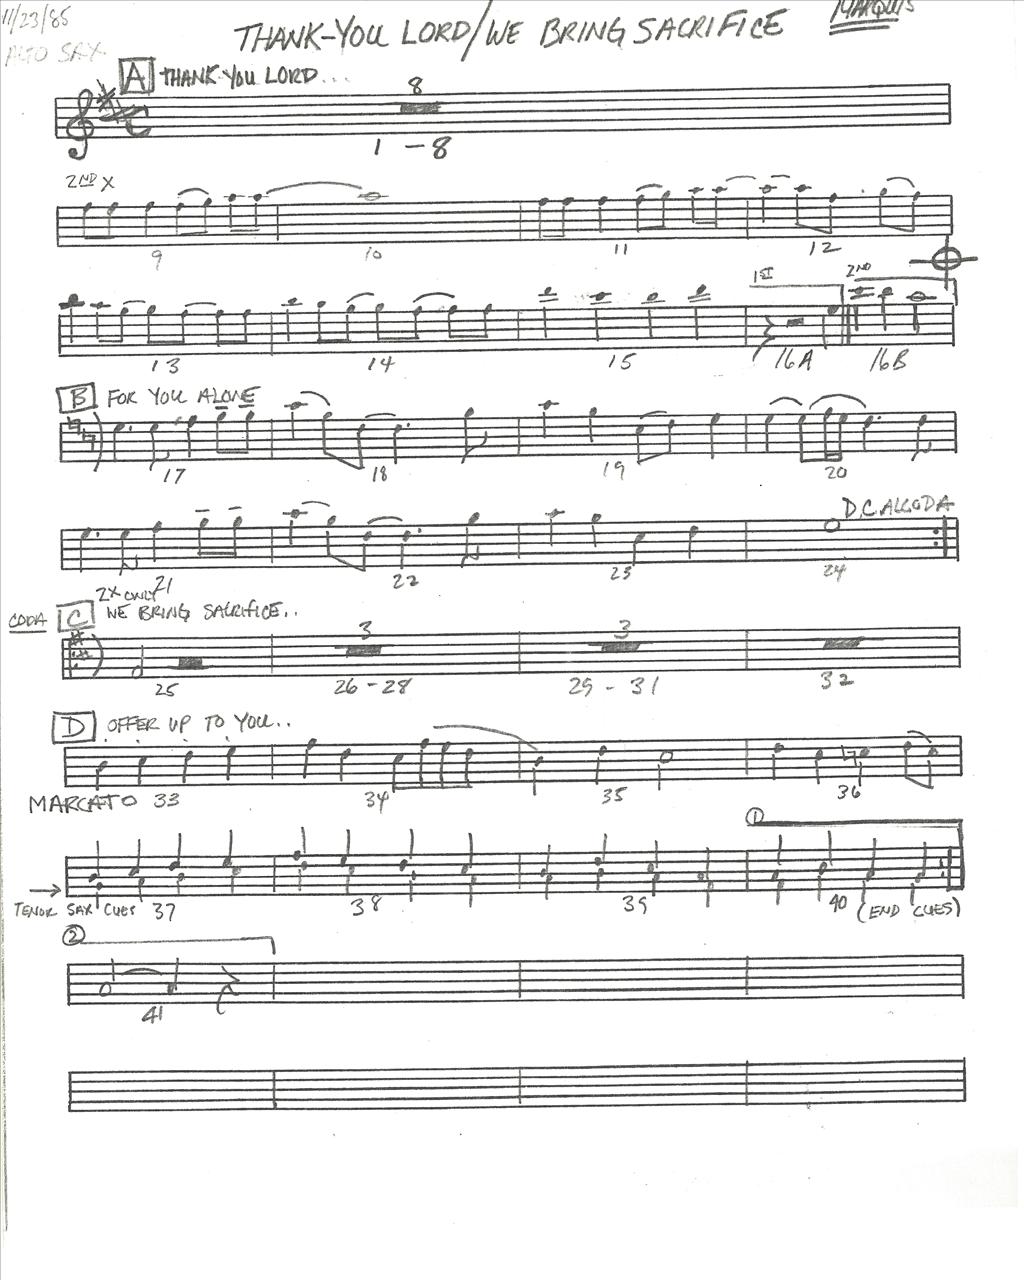 11/23/85
ALTO SAX
THANK-YOU LORD/WE BRING SACRIFICE
MARQUIS
A THANK YOU LORD...
8
1 - 8
2ND X
9 10 11 12
1ST 2ND
13 14 15 16A 16B
B FOR YOU ALONE
17 18 19 20
D.C. AL CODA
21 22 23 24
2X ONLY
CODA C WE BRING SACRIFICE..
3 3
25 26-28 29-31 32
D OFFER UP TO YOU..
MARCATO 33 34 35 36
1
TENOR SAX CUES 37 38 39 40 (END CUES)
2
41